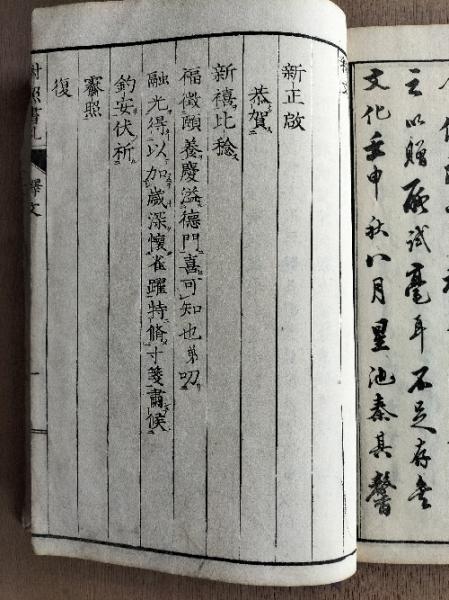 之以贈聊試毫耳不足存玄
文化壬申秋八月星池秦其馨
釋文
新正啟
恭賀
新禧比稔
福徵頤養慶溢德門喜可知也弟叨
融光得以加歲深懷雀躍特脩寸箋肅候
鈞安伏祈
霽照
復
對照書札
釋文
一